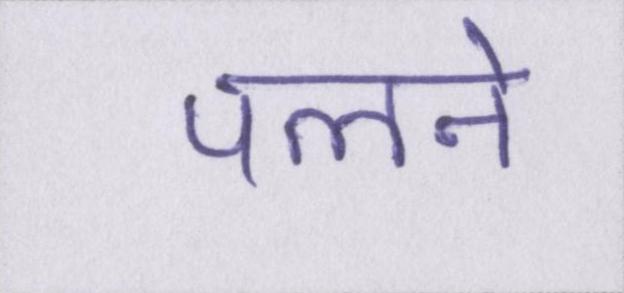 पलने